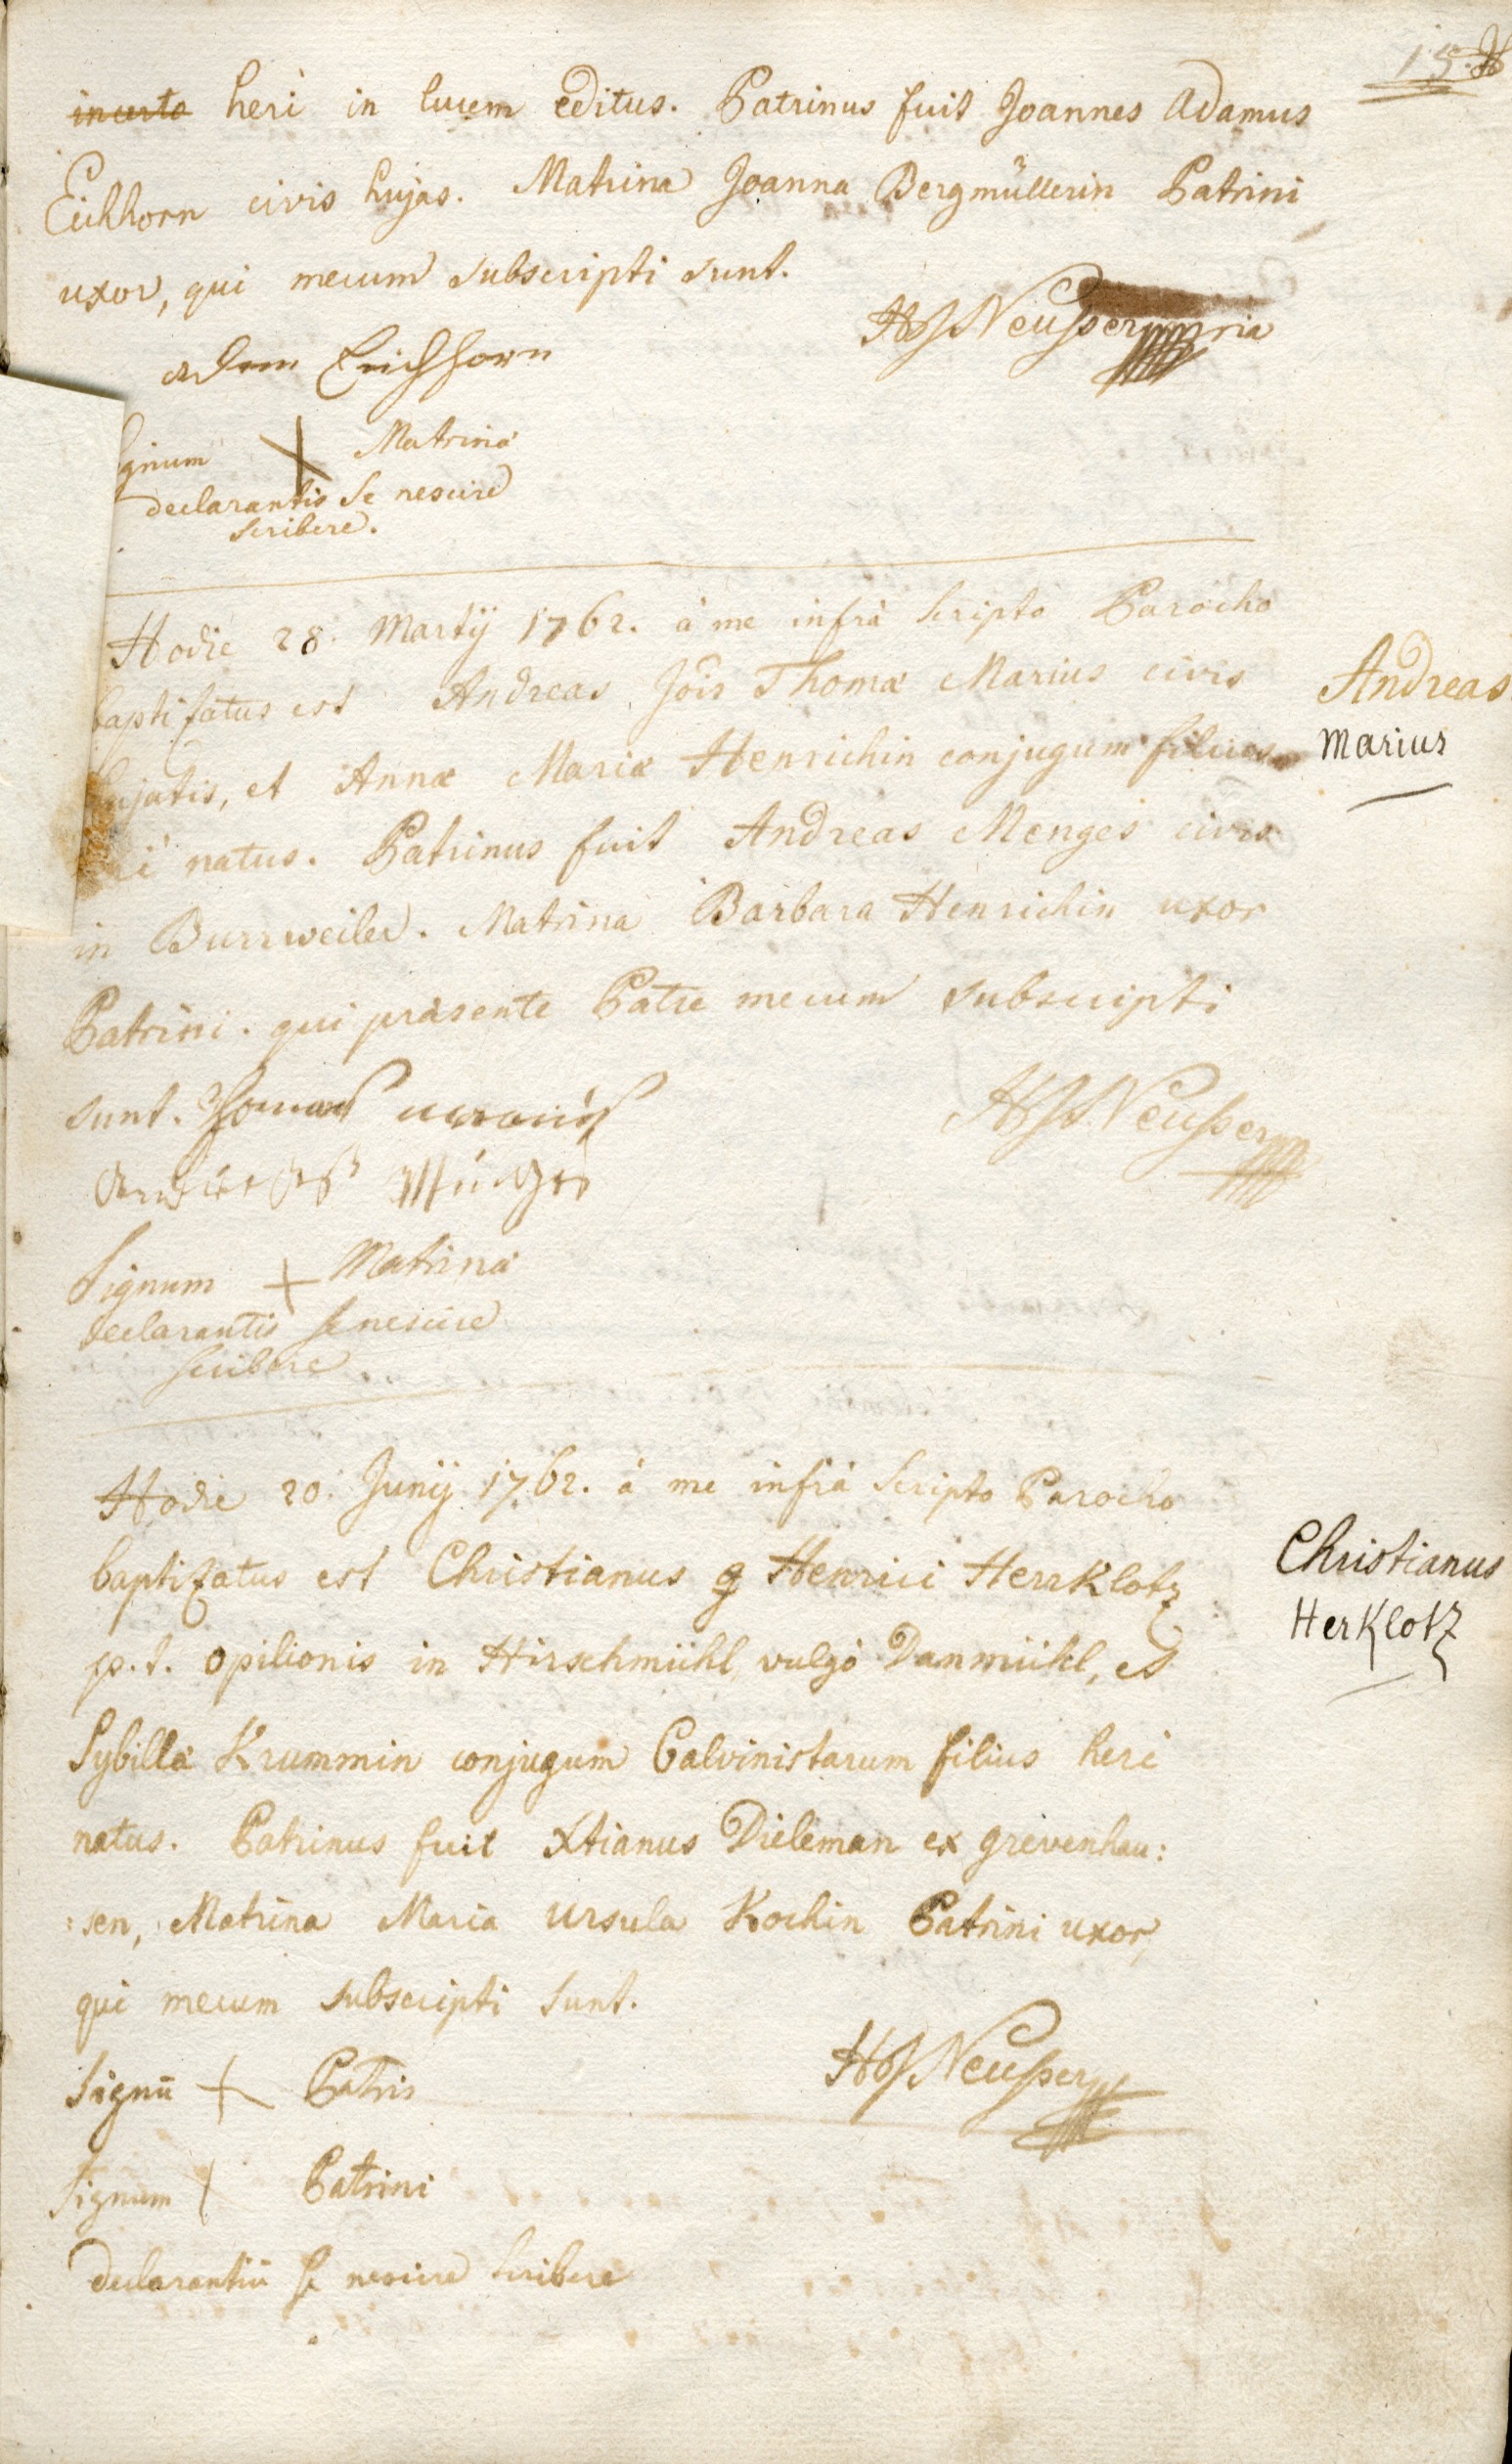 15.
incerto heri in lucem editus. Patrinus fuit Joannes Adamus
Eichhorn civis hujas. Matrina Joanna Bergmüllerin Patrini
uxor, qui mecum subscripti sunt.
HJNeusser mpria
adam Eichhorn
gnum X Matrinæ
declarantis se nescire
scribere.
Hodie 28. Martij 1762. à me infrà scripto Parocho
baptisatus est Andreas Jois Thomæ Marius civis
Andreas
Marius
hujatis, et Annæ Mariæ Henrichin conjugum filius
heri natus. Patrinus fuit Andreas Menges civis
in Burrweiler. Matrina Barbara Henrichin uxor
Patrini. qui præsente Patre mecum subscripti
sunt. Thomas marius
HJNeusser
Signum + Matrinæ
declarantis se nescire
scribere.
Hodie 20. Junij 1762. à me infrà scripto Parocho
baptizatus est Christianus Henrici Herrklotz
Christianus
Herklotz
p.t. opilionis in Hirschmühl vulgò Danmühl, et
Sybillæ Krummin conjugum Calvinistarum filius heri
natus. Patrinus fuit Xtianus Dieleman ex grevenhau:
:sen, Matrina Maria Ursula Kochin Patrini uxor,
qui mecum subscripti sunt.
HJNeusser
Signū + Patris
Signum + Patrini
declarantiū se nescire scribere